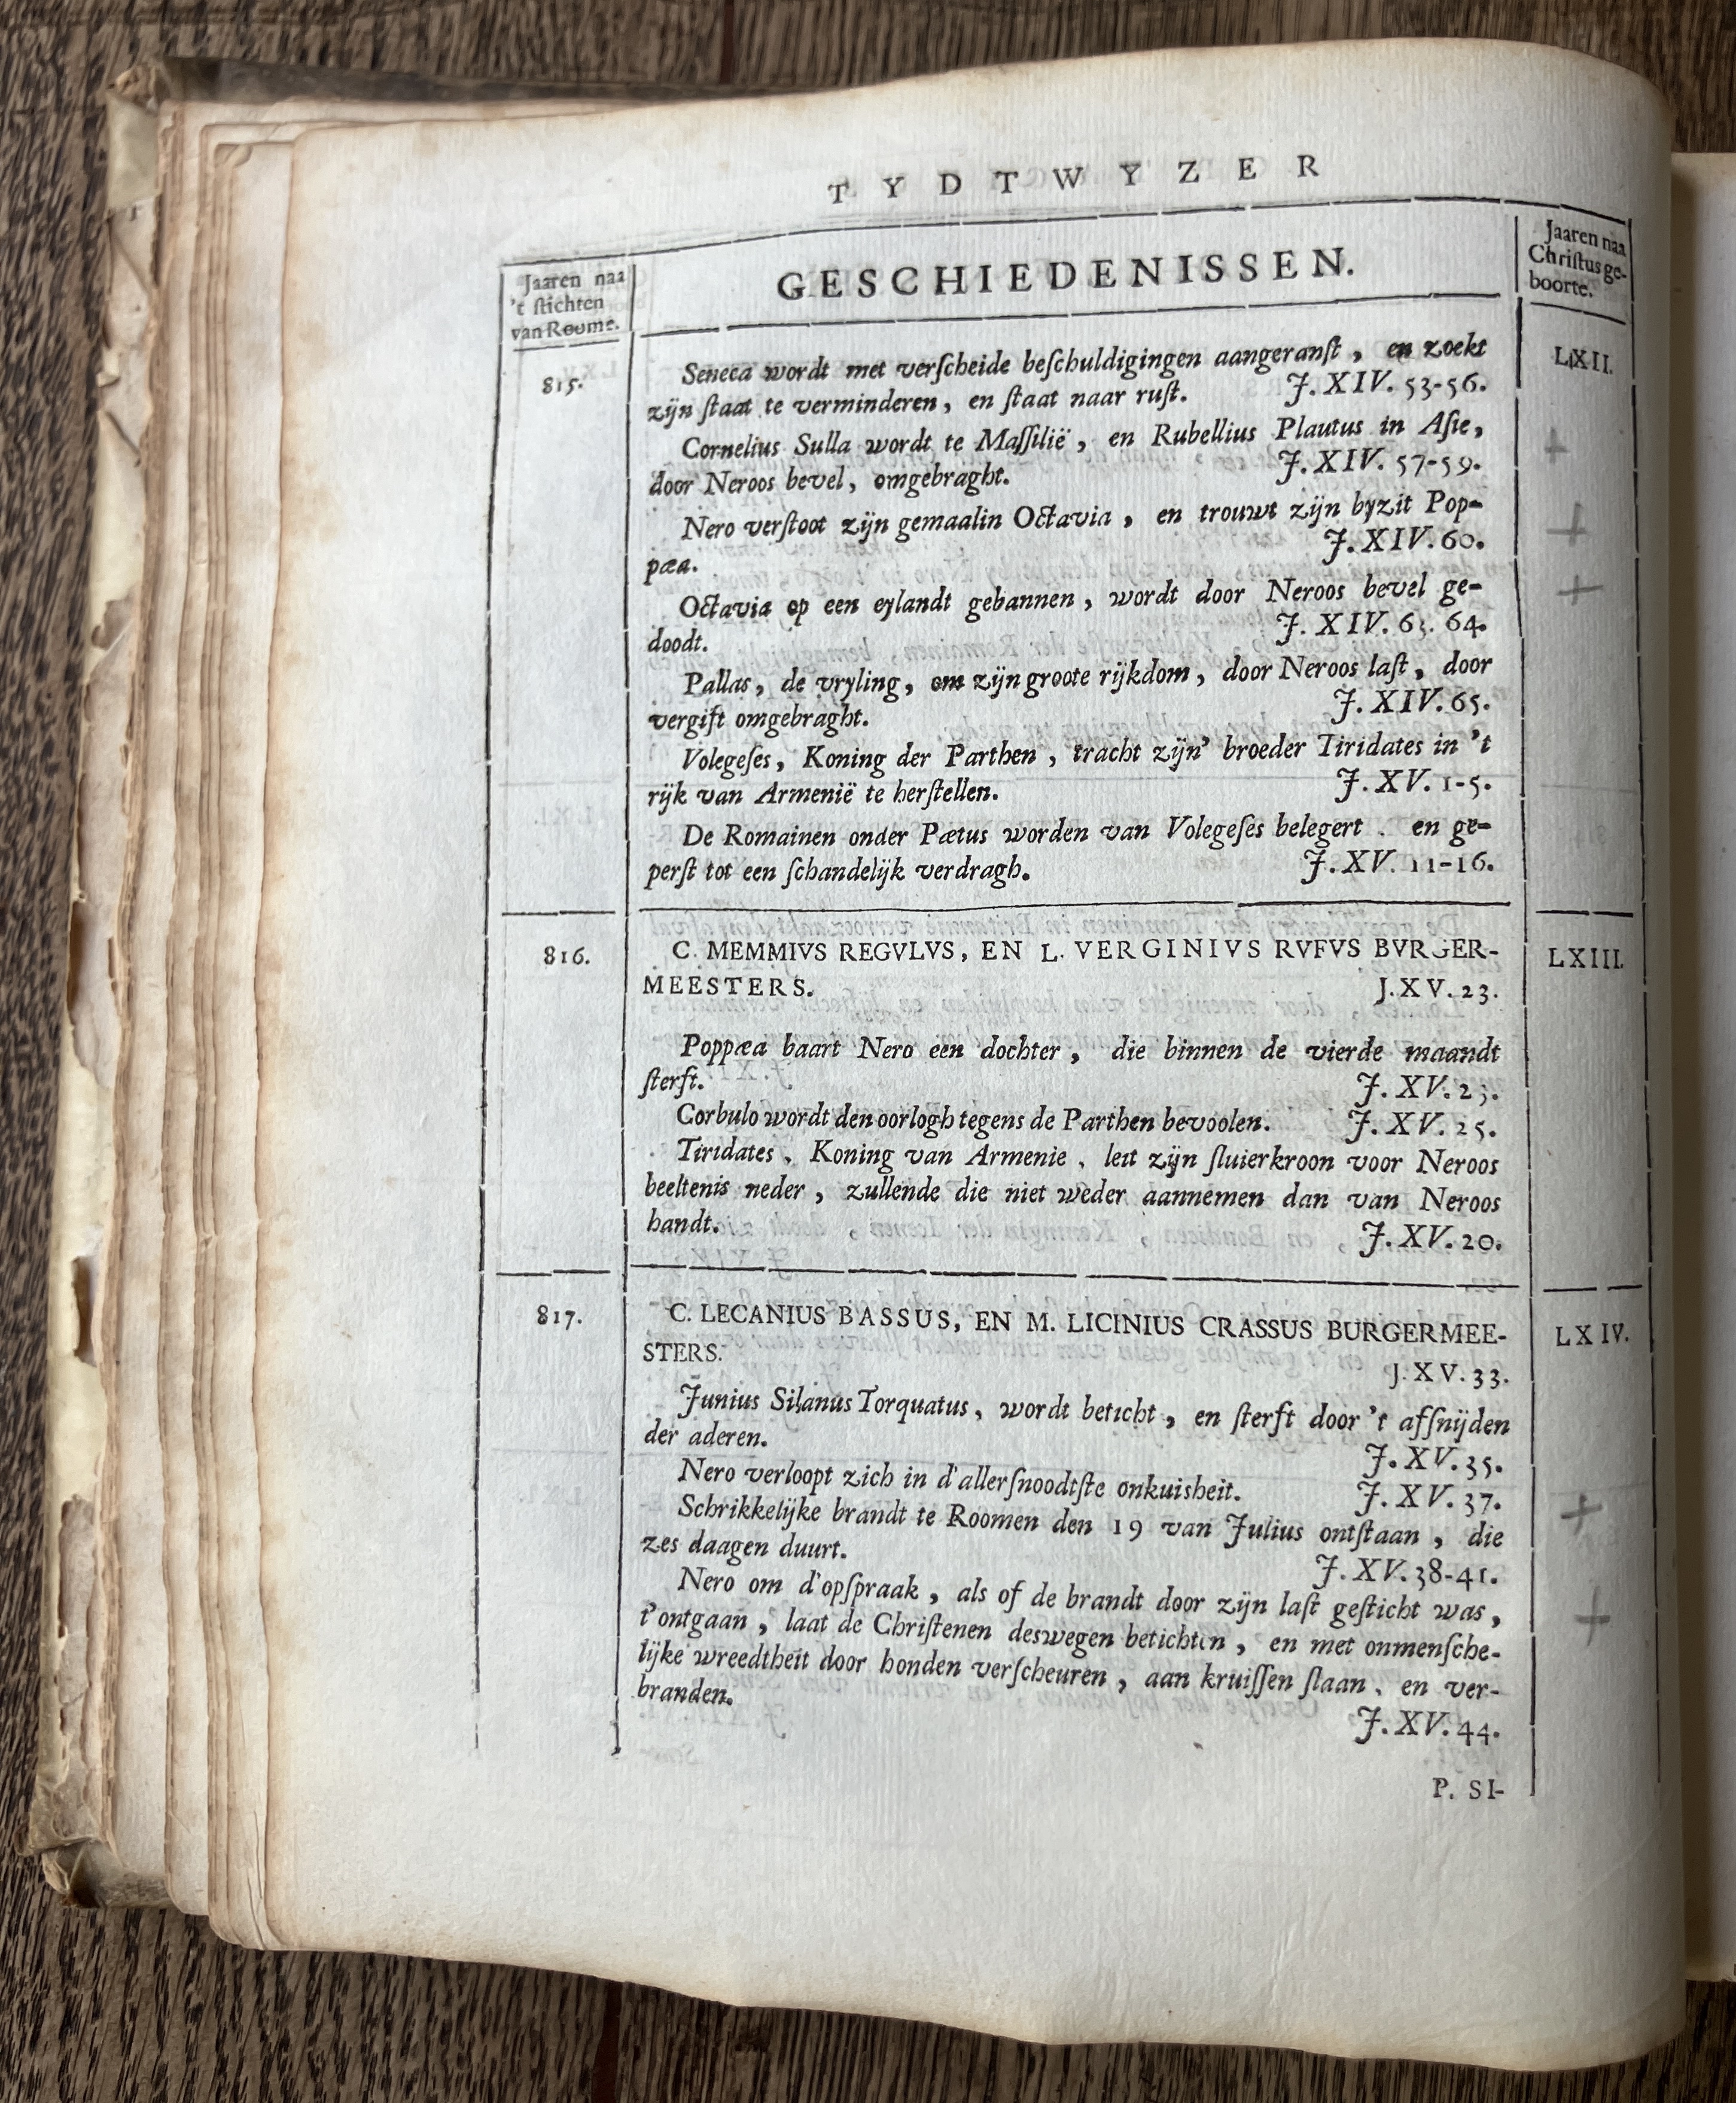 TYDTWYZER
Jaaren naa
't ſtichten
van Roome.
GESCHIEDENISSEN.
Jaaren naa
Chriſtus ge-
boorte.
815.
LXII.
Seneca wordt met verſcheide beſchuldigingen aangeranſt, en zoekt
zijn ſtaat te verminderen, en ſtaat naar ruſt. J. XIV. 53-56.
Cornelius Sulla wordt te Maſſilië, en Rubellius Plautus in Aſie,
door Neroos bevel, omgebraght. J. XIV. 57-59.
Nero verſtoot zijn gemaalin Octavia, en trouwt zijn byzit Pop-
pæa. J. XIV. 60.
Octavia op een eylandt gebannen, wordt door Neroos bevel ge-
doodt. J. XIV. 63. 64.
Pallas, de vryling, om zijn groote rijkdom, door Neroos laſt, door
vergift omgebraght. J. XIV. 65.
Volegeſes, Koning der Parthen, tracht zijn' broeder Tiridates in 't
rijk van Armenië te herſtellen. J. XV. 1-5.
De Romainen onder Pætus worden van Volegeſes belegert, en ge-
perſt tot een ſchandelijk verdragh. J. XV. 11-16.
816.
LXIII.
C. MEMMIVS REGVLVS, EN L. VERGINIVS RVFVS BVRGER-
MEESTERS. J. XV. 23.
Poppæa baart Nero een dochter, die binnen de vierde maandt
ſterft. J. XV. 23.
Corbulo wordt den oorlogh tegens de Parthen bevoolen. J. XV. 25.
Tiridates, Koning van Armenie, leit zijn ſluierkroon voor Neroos
beeltenis neder, zullende die niet weder aannemen dan van Neroos
handt. J. XV. 20.
817.
LXIV.
C. LECANIUS BASSUS, EN M. LICINIUS CRASSUS BURGERMEE-
STERS. J. XV. 33.
Junius Silanus Torquatus, wordt beticht, en ſterft door 't afſnijden
der aderen. J. XV. 35.
Nero verloopt zich in d'allerſnoodtſte onkuisheit. J. XV. 37.
Schrikkelijke brandt te Roomen den 19 van Julius ontſtaan, die
zes daagen duurt. J. XV. 38-41.
Nero om d'opſpraak, als of de brandt door zijn laſt geſticht was,
t'ontgaan, laat de Chriſtenen deswegen betichten, en met onmenſche-
lijke wreedtheit door honden verſcheuren, aan kruiſſen ſlaan, en ver-
branden. J. XV. 44.
P. SI-